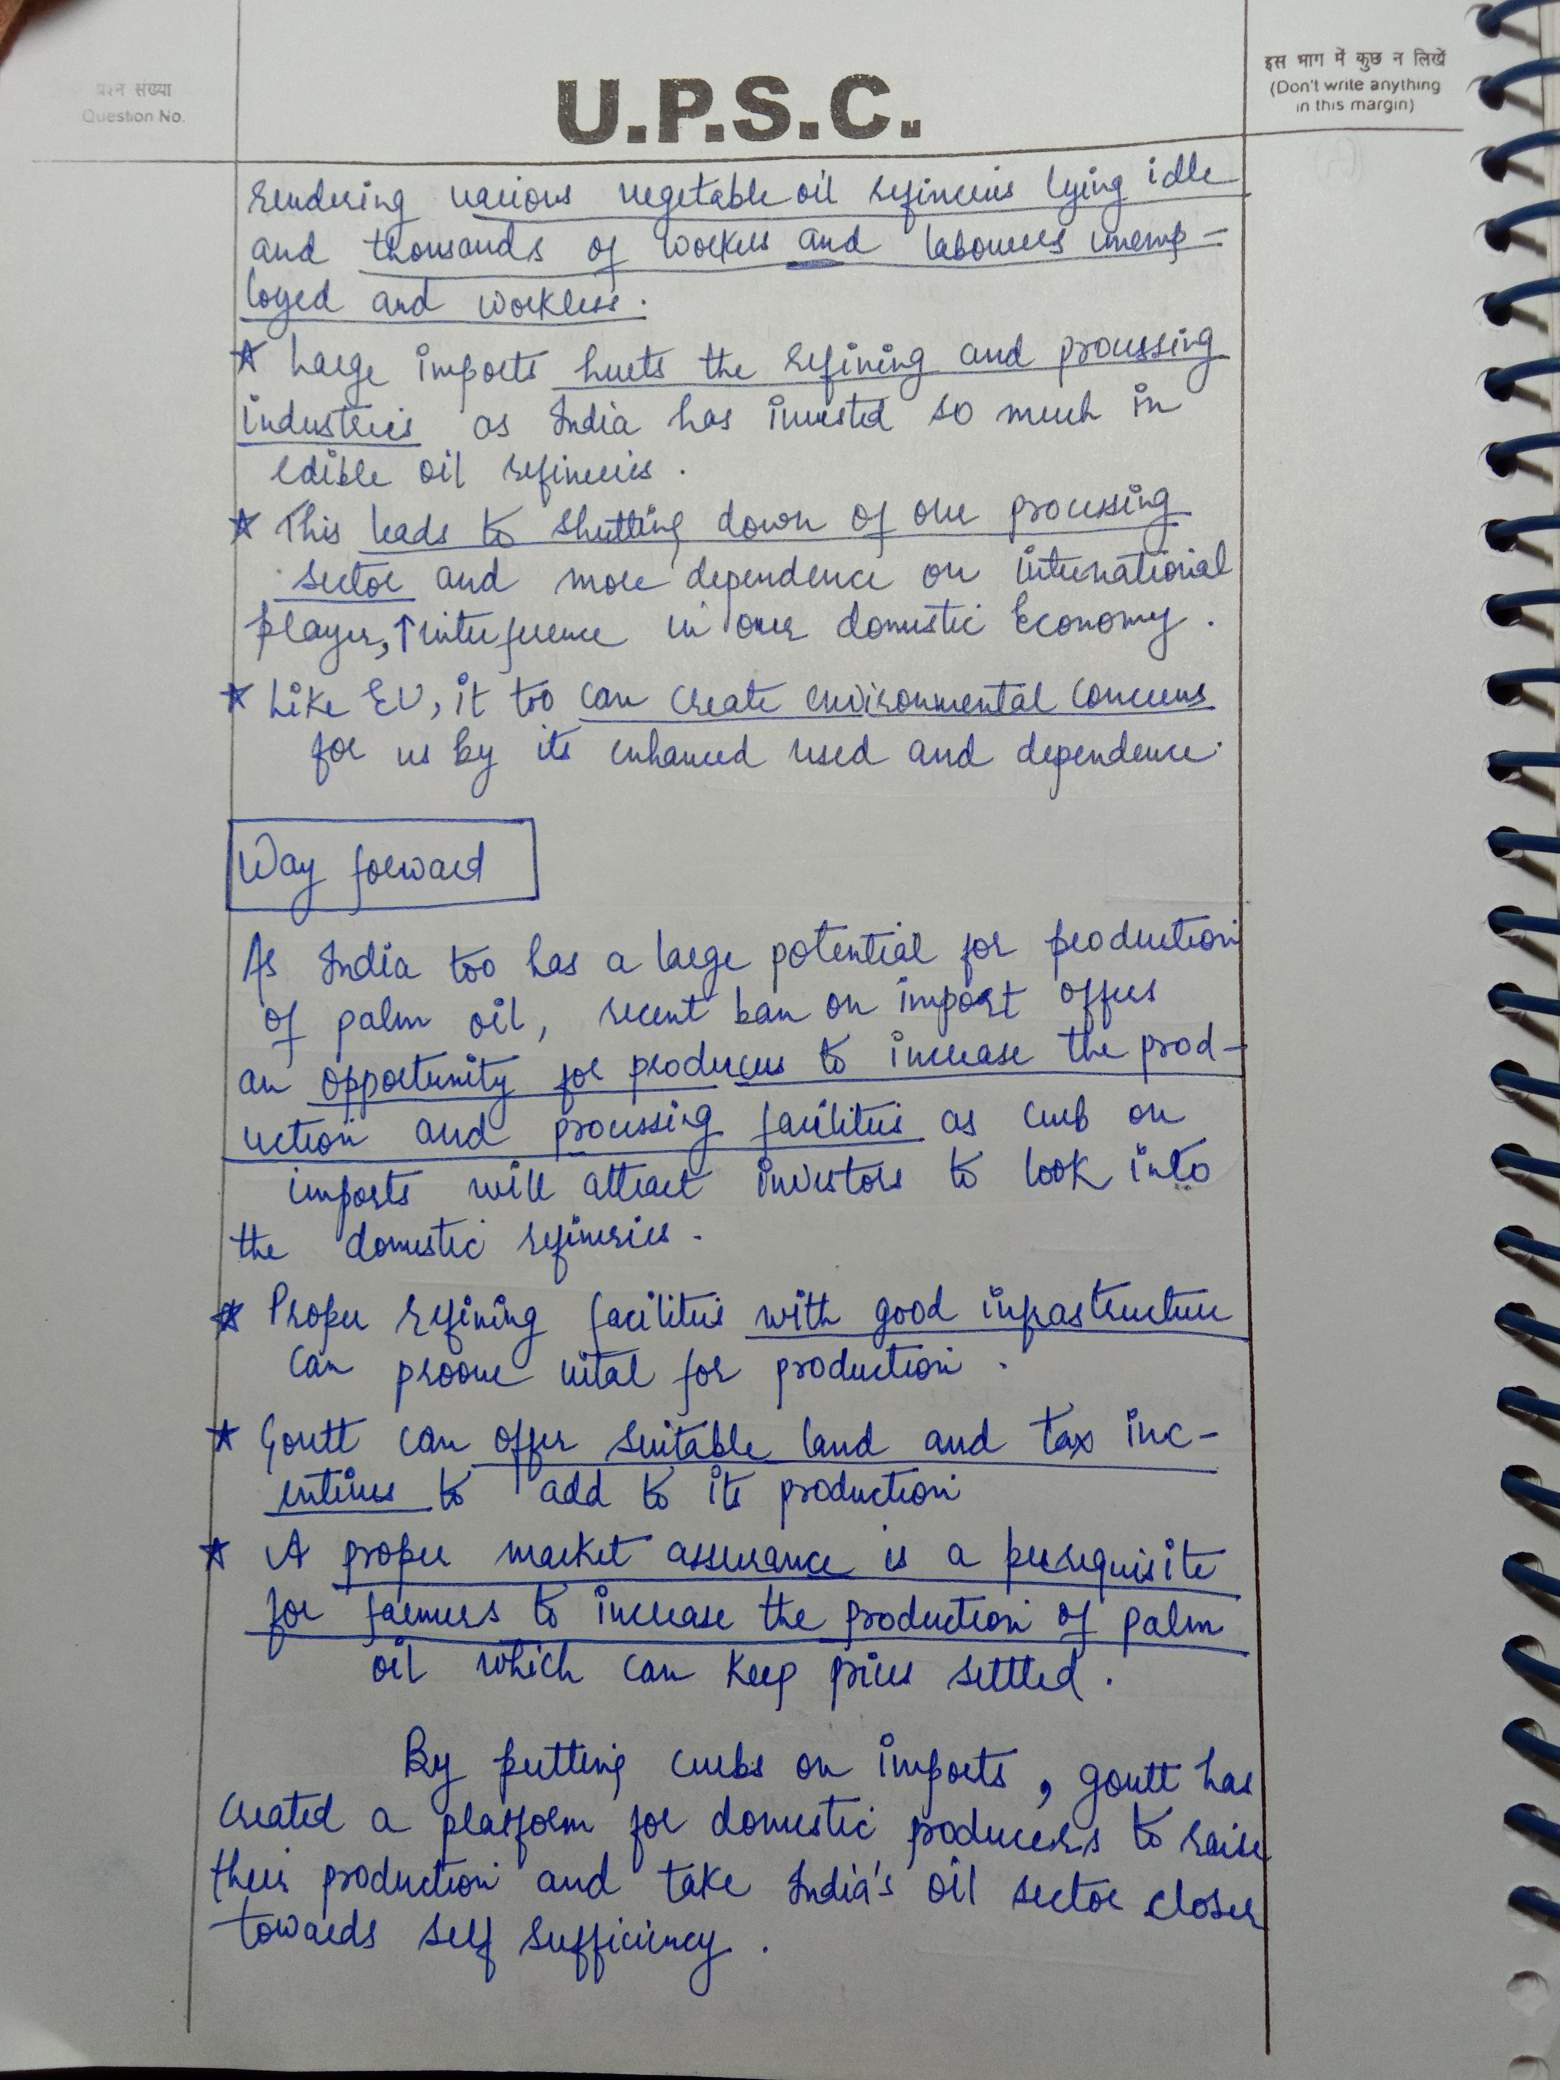 प्रश्न संख्या
Question No.
U.P.S.C.
इस भाग में कुछ न लिखें
(Don't write anything
in this margin)
rendering various vegetable oil refineries lying idle
and thousands of workers and labourers unemp-
loyed and workless.
☆ Large imports hurts the refining and processing
industries as India has invested so much in
edible oil refineries.
☆ This leads to shutting down of our processing
sector and more dependence on international
player, ↑ interference in our domestic Economy.
☆ Like EU, it too can create environmental concerns
for us by its enhanced used and dependence.
Way forward
As India too has a large potential for production
of palm oil, recent ban on import offers
an opportunity for producers to increase the prod-
uction and processing facilities as curb on
imports will attract investors to look into
the domestic refineries.
☆ Proper refining facilities with good infrastructure
can proove vital for production.
☆ Govtt can offer suitable land and tax inc-
entives to add to its production
☆ A proper market assurance is a prerequisite
for farmers to increase the production of palm
oil which can keep prices settled.
By putting curbs on imports, govtt has
created a platform for domestic producers to raise
their production and take India's oil sector closer
towards self sufficiency.